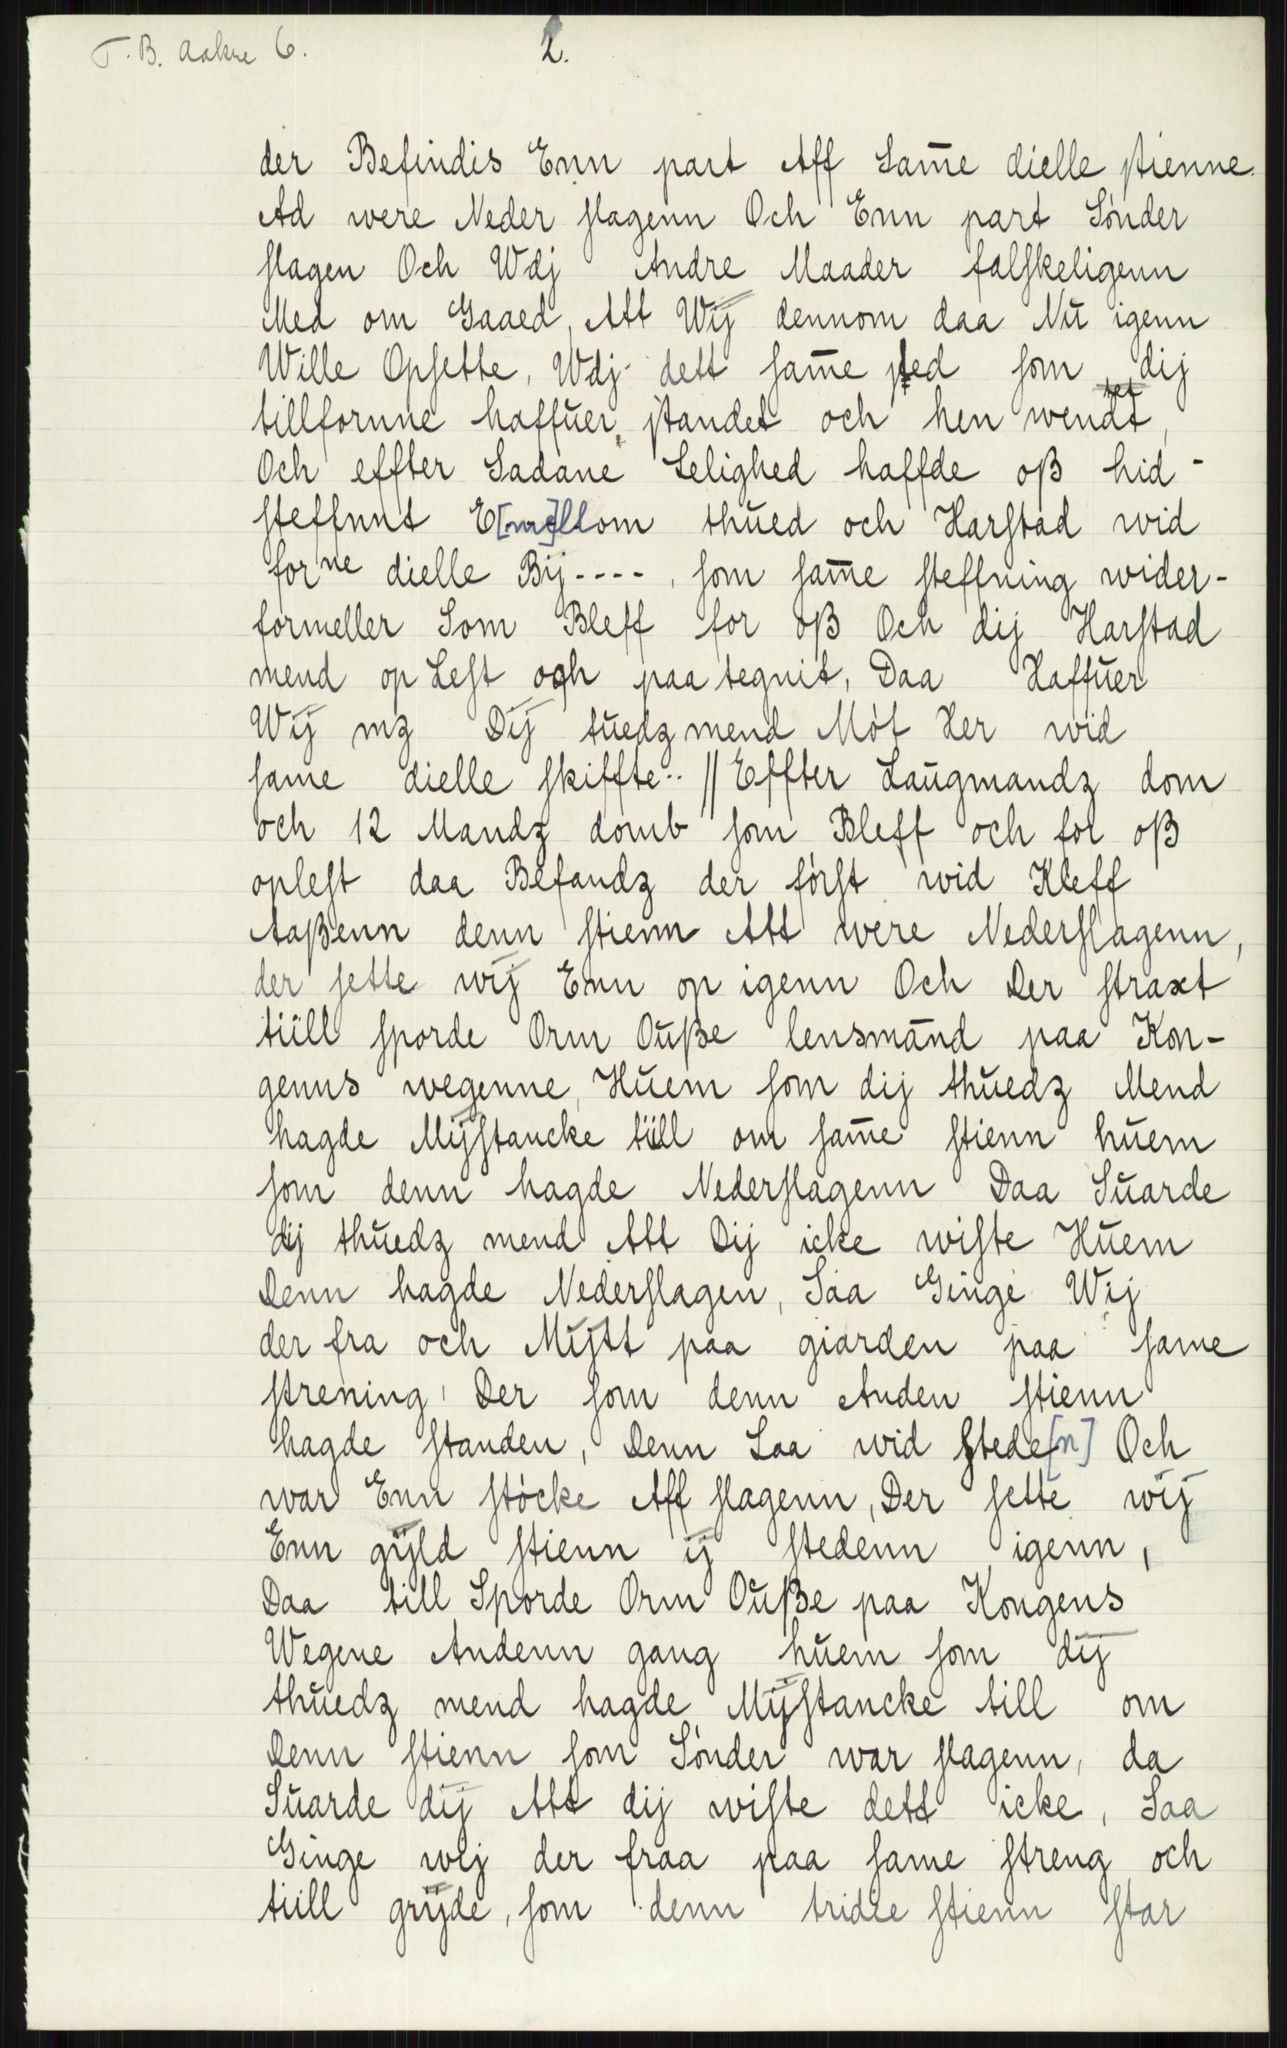 T. B. Aakre 6.
2.
der Befindis Enn part Aff Sam̅e dielle stienne
Ad were Neder slagenn Och Enn part Sónder
slagen Och Wdj Andre Maader falskeligenn
Med om Gaaed, Att Wij dennom daa Nŭ igenn
Wille Opsette, Wdj dett sam̅e sted som dij
tillfornne haffŭer standet och hen wendt,
tet
Och effter Sadane Lelighed haffde oß hid-
steffnnt E[me]llom thŭed och Harstad wid
forne dielle Bij----, som sam̅e steffning wider-
formeller Som Bleff for oß Och dij Harstad
mend op Lest och paa tegnit, Daa Haffŭer
Wij mz Dij tŭedz mend Mót Her wid
same dielle skiffte.. // Effter Laŭgmandz dom
och 12 Mandz domb som Bleff och for oß
oplest daa Befandz der fórst wid Kleff
Aaßenn denn stienn Att were Nederslagenn,
der sette wij Enn op igenn Och Der straxt
tiill sporde Orm Oŭße lensmānd paa Kon-
genns wegenne, Hŭem som dij thŭedz Mend
hagde Mijstancke tiill om sam̅e stienn hŭem
som denn hagde Nederslagenn Daa Sŭarde
dij thŭedz mend Att Dij icke wiste Hŭem
Denn hagde Nederslagen, Saa Ginge Wij
der fra och Mijtt paa giarden paa same
strening, Der som denn Anden stienn
hagde standen, Denn Laa wid stede[n] Och
war Enn stócke Aff slagenn, Der sette wij
Enn gijld stienn ij stedenn igenn,
Daa till Sporde Orm Oŭße paa Kongens
Wegene Andenn gang hŭem som dij
thŭedz mend hagde Mijstancke till om
Denn stienn som Sónder war slagenn, da
Sŭarde dij Att dij wiste dett icke, Saa
Ginge wij der fraa paa same streng och
tiill grijde, som denn tridie stienn star